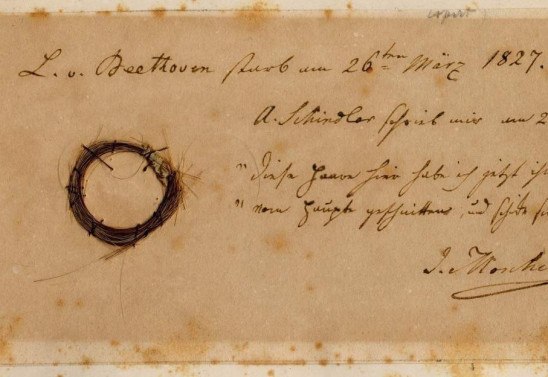 copirt
L. v. Beethoven starb am 26ten März 1827.
A. Schindler schrieb mir am 2
"Diese Haare hier habe ich jetzt ih
" vom Haupte geschnitten, und schike s